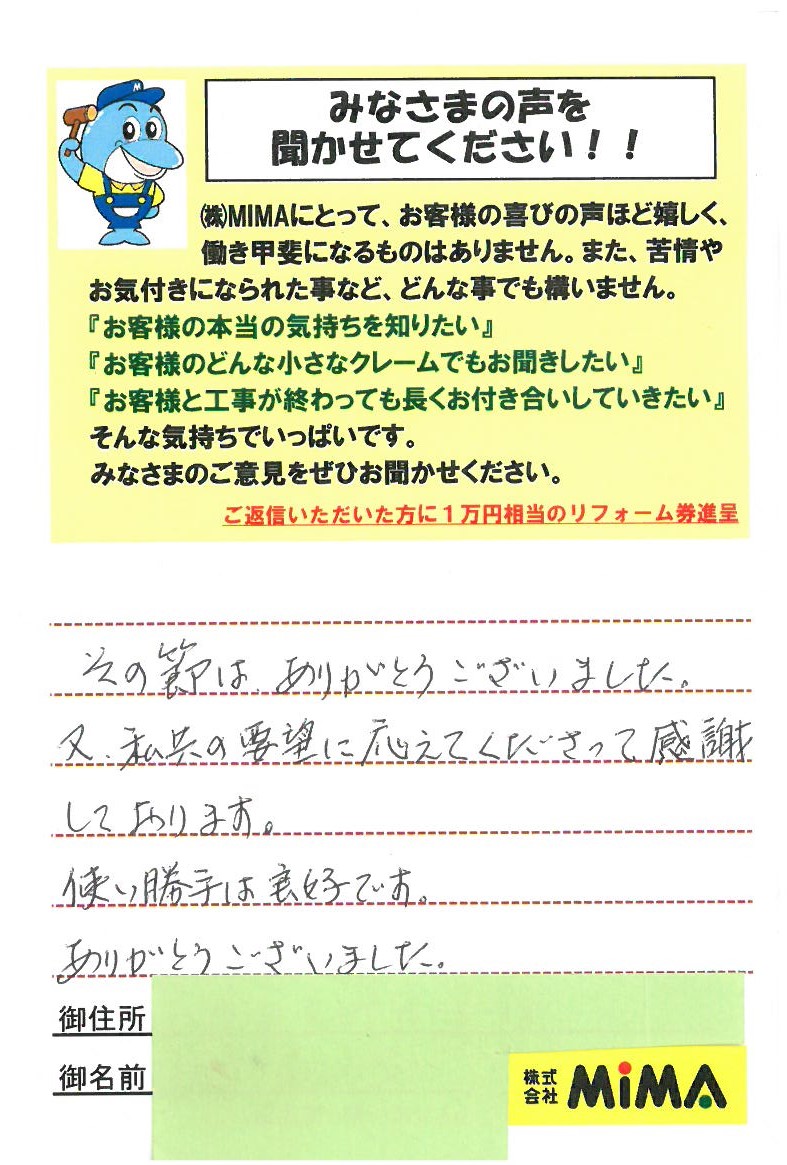 みなさまの声を
聞かせてください！！
㈱MIMAにとって、お客様の喜びの声ほど嬉しく、
働き甲斐になるものはありません。また、苦情や
お気付きになられた事など、どんな事でも構いません。
『お客様の本当の気持ちを知りたい』
『お客様のどんな小さなクレームでもお聞きしたい』
『お客様と工事が終わっても長くお付き合いしていきたい』
そんな気持ちでいっぱいです。
みなさまのご意見をぜひお聞かせください。
ご返信いただいた方に１万円相当のリフォーム券進呈
その節は、ありがとうございました。
又、私共の要望に応えてくださって、感謝
しております。
使い勝手は良好です。
ありがとうございました。
御住所
御名前
株式
会社 MiMA
M